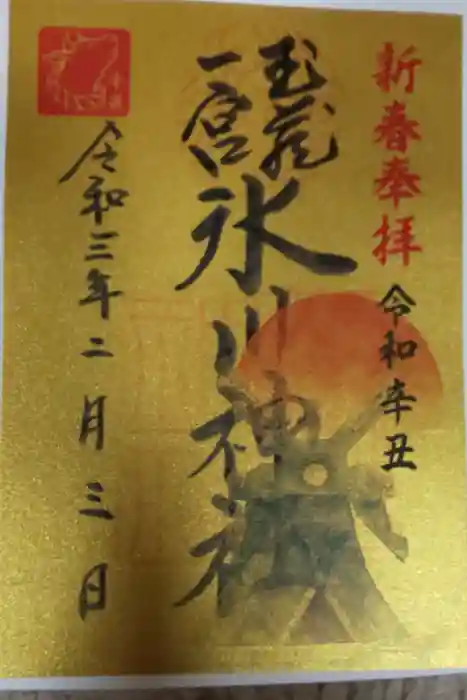 新春奉拝
令和辛丑
武蔵
一宮
氷川神社
令和三年二月三日